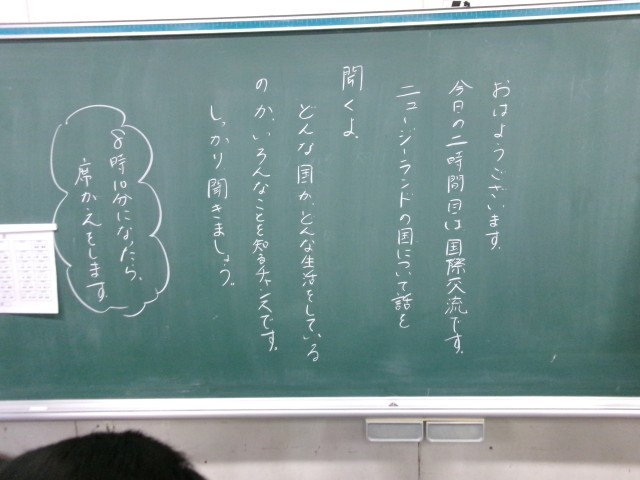 おはようございます。
今日の二時間目は国際交流です。
ニュージーランドの国について話を
聞くよ。
どんな国か、どんな生活をしている
のか、いろんなことを知るチャンスです。
しっかり聞きましょう。
8時10分になったら、
席がえをします。